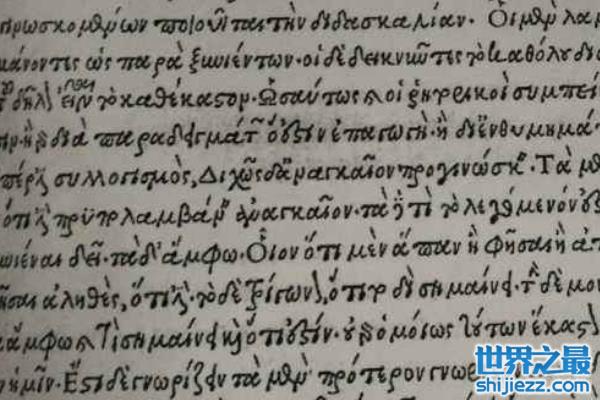 γινωσκομένων ποιοῦνται τὴν διδασκαλίαν. Οἱ μὲν λαμ
βάνοντες ὡς παρὰ ξυνιέντων. οἱ δὲ δεικνύντες τὸ καθόλου δι
δῆλον εἶναι τὸ καθέκαστον. Ὡσαύτως καὶ οἱ ῥητορικοὶ συμπεί
ἢ γὰρ διὰ παραδειγμάτων ὅ ἐστιν ἐπαγωγὴ ἢ δι' ἐνθυμημά
περ ἐστὶ συλλογισμός, Διχῶς δ' ἀναγκαῖον προγινώσκειν. Τὰ μὲν
ὅτι ἔστι προϋπολαμβάνειν ἀναγκαῖον. τὰ δὲ τί τὸ λεγόμενόν ἐστι
ξυνιέναι δεῖ. τὰ δ' ἄμφω. Οἷον ὅτι μὲν ἅπαν ἢ φῆσαι ἢ ἀπ
φῆσαι ἀληθὲς, ὅτι ἔστι. τὸ δὲ τρίγωνον, ὅτι σημαίνει. τὴν δὲ μον
ἄμφω καὶ τί σημαίνει καὶ ὅτι ἐστίν. οὐ γὰρ ὁμοίως τούτων ἕκαστ
ἡμῖν. Ἔστι δὲ γνωρίζειν τὰ μὲν πρότερον γνωρ
世界之最
shijiezz.com